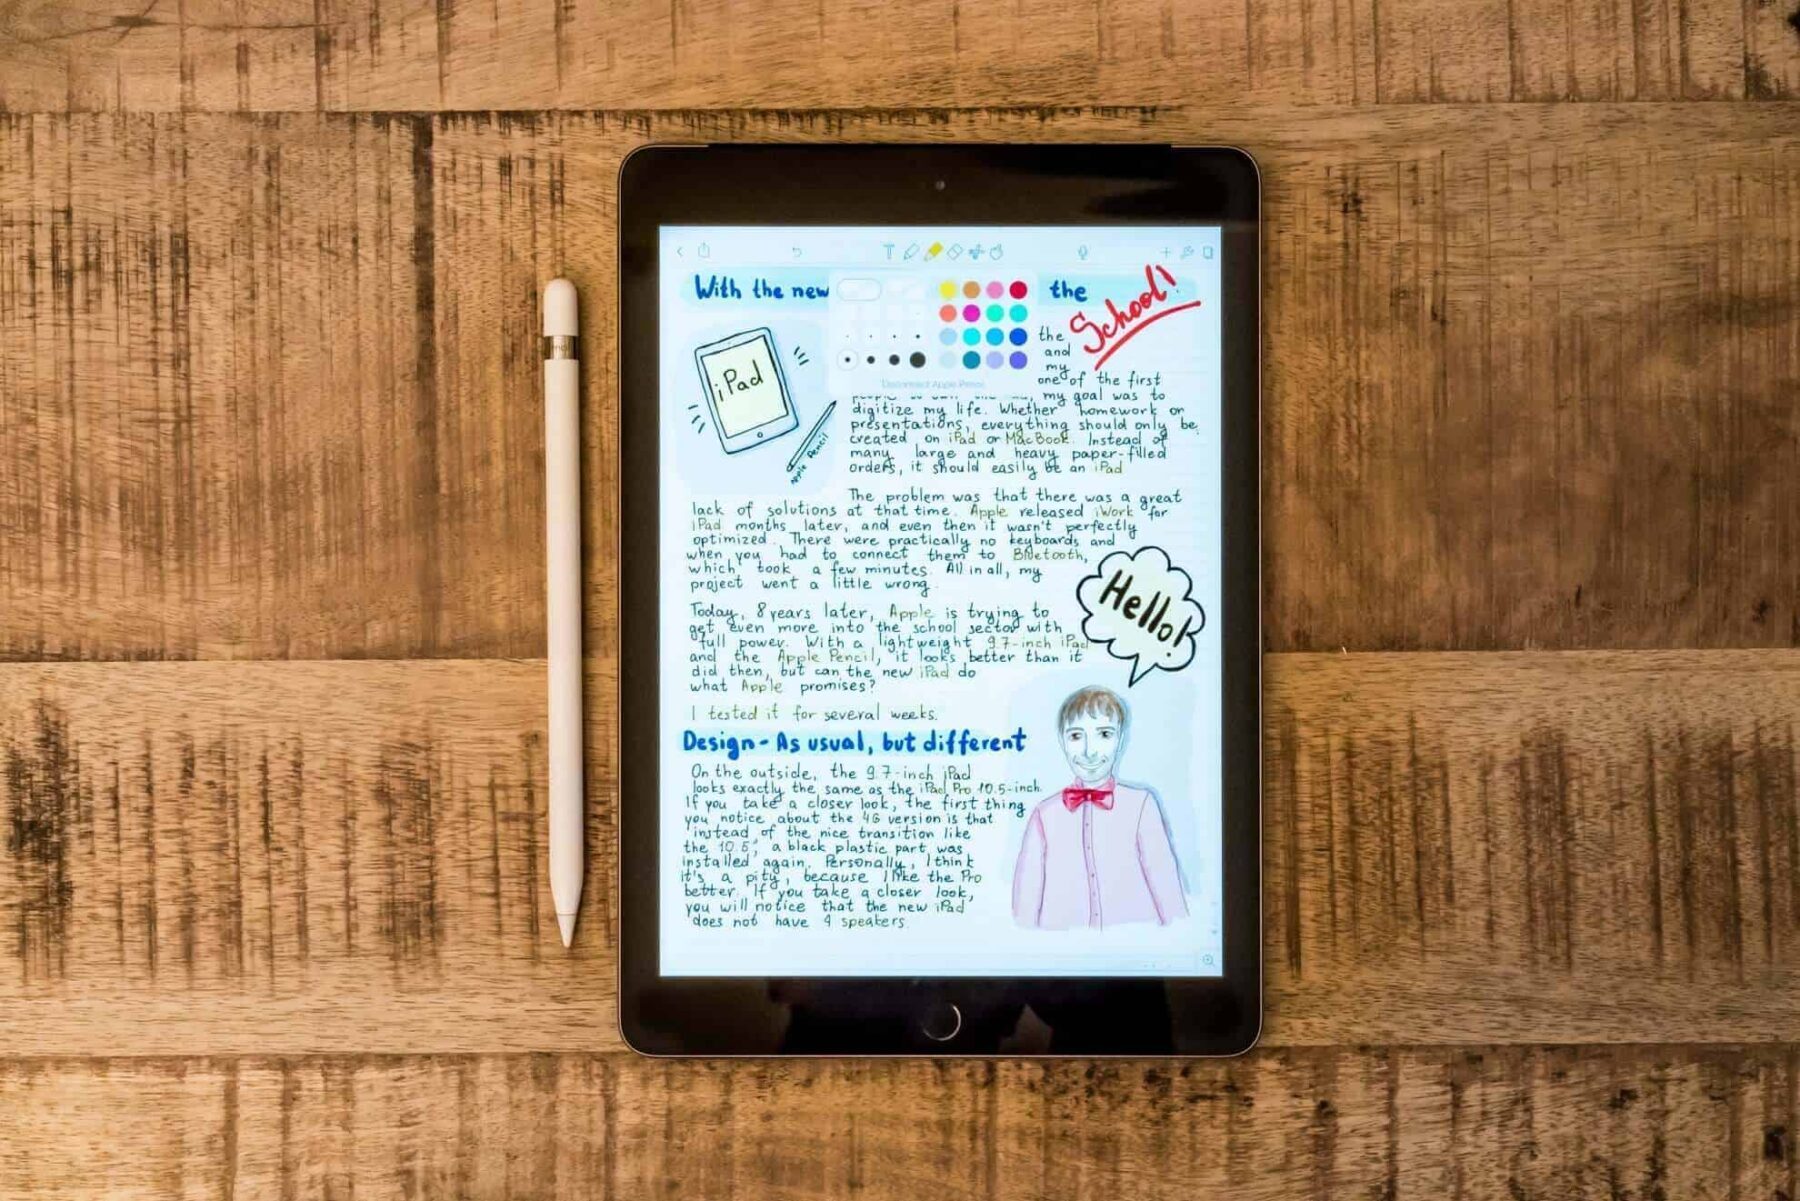 With the new the School!
the
and
my
iPad
Apple Pencil
one of the first
my goal was to
digitize my life. Whether homework or
presentations, everything should only be
created on iPad or MacBook. Instead of
many large and heavy paper-filled
orders, it should easily be an iPad
The problem was that there was a great
lack of solutions at that time. Apple released iWork for
iPad months later, and even then it wasn't perfectly
optimized. There were practically no keyboards and
when you had to connect them to Bluetooth,
which took a few minutes. All in all, my
project went a little wrong.
Hello!
Today, 8 years later, Apple is trying to
get even more into the school sector with
full power. With a lightweight 9.7-inch iPad
and the Apple Pencil, it looks better than it
did then, but can the new iPad do
what Apple promises?
I tested it for several weeks.
Design - As usual, but different
On the outside, the 9.7-inch iPad
looks exactly the same as the iPad Pro 10.5-inch
If you take a closer look, the first thing
you notice about the 4G version is that
instead of the nice transition like
the 10.5", a black plastic part was
installed again. Personally, I think
it's a pity, because I like the Pro
better. If you take a closer look,
you will notice that the new iPad
does not have 4 speakers.